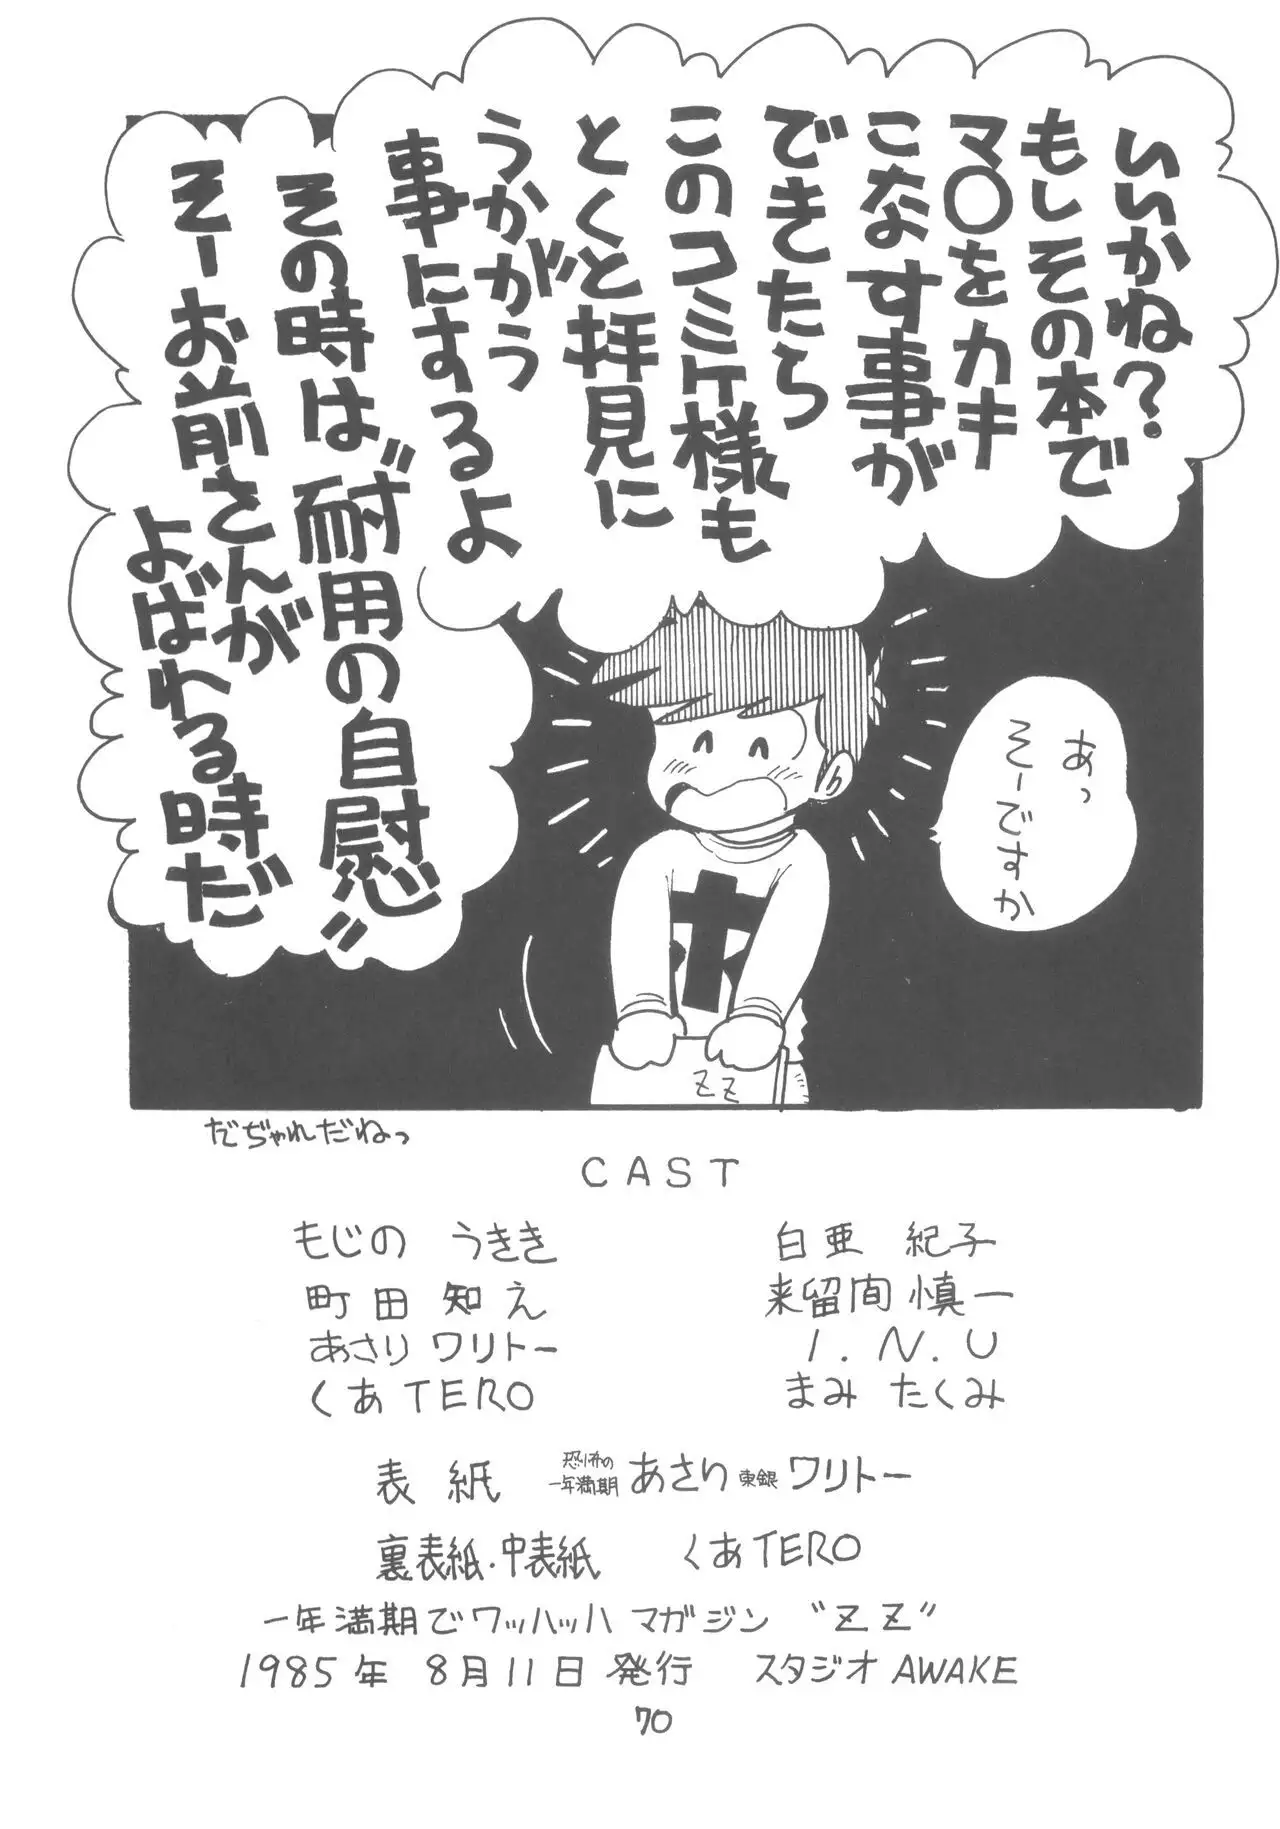 いいかね?
もしその本で
マ〇をカキ
こなす事が
できたら
このコミケ様も
とくと拝見に
うかがう
事にするよ
その時は〝耐用の自慰〟
そーお前さんが
よばわる時だ
あっ
そーですか
ホ
ZZ
だぢゃれだねっ
CAST
もじの うきき
白亜 紀子
町田 知え
来留間 慎一
あさり ワリトー
I.N.U
くあTERO
まみ たくみ
表紙 恐怖の一年満期 あさり 東銀 ワリトー
裏表紙・中表紙 くあTERO
一年満期でワッハッハ マガジン 〝ZZ〟
1985年 8月11日 発行 スタジオ AWAKE
70